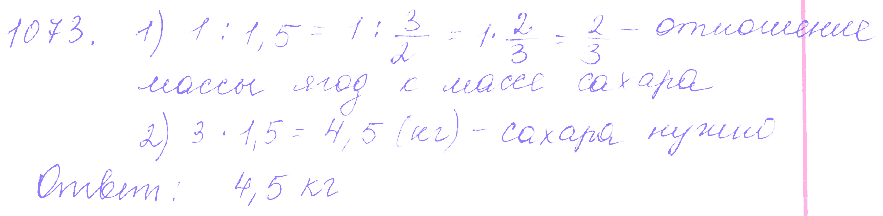 1073. 1) 1 : 1,5 = 1 : 3/2 = 1 · 2/3 = 2/3 – отношение
массы ягод к массе сахара
2) 3 · 1,5 = 4,5 (кг) – сахара нужно
Ответ: 4,5 кг